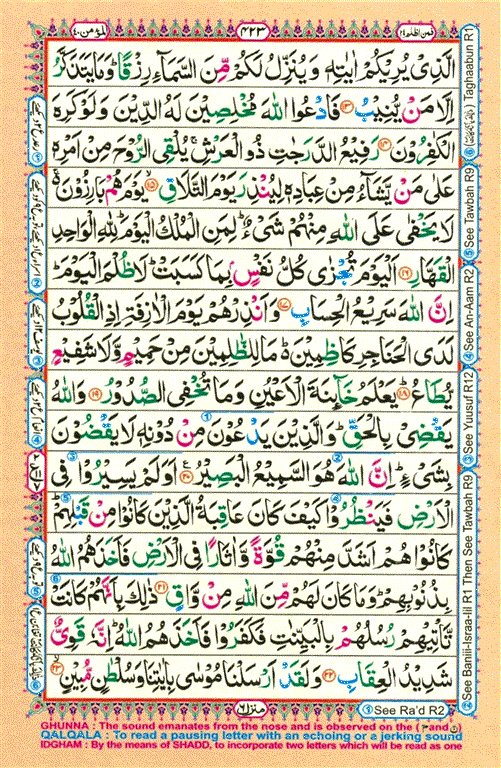 المؤمن ٤٠
٤٢٣
فمن اظلم ٢٤
الَّذِیْ یُرِیْكُمْ اٰیٰتِهٖ وَیُنَزِّلُ لَكُمْ مِّنَ السَّمَآءِ رِزْقًا ؕ وَمَا یَتَذَكَّرُ
اِلَّا مَنْ یُّنِیْبُ ﴿۱۳﴾ فَادْعُوا اللّٰهَ مُخْلِصِیْنَ لَهُ الدِّیْنَ وَلَوْ كَرِهَ
الْكٰفِرُوْنَ ﴿۱۴﴾ رَفِیْعُ الدَّرَجٰتِ ذُو الْعَرْشِ ۚ یُلْقِی الرُّوْحَ مِنْ اَمْرِهٖ
عَلٰی مَنْ یَّشَآءُ مِنْ عِبَادِهٖ لِیُنْذِرَ یَوْمَ التَّلَاقِ ﴿۱۵﴾ یَوْمَ هُمْ بَارِزُوْنَ ۚ
لَا یَخْفٰی عَلَی اللّٰهِ مِنْهُمْ شَیْءٌ ؕ لِمَنِ الْمُلْكُ الْیَوْمَ ؕ لِلّٰهِ الْوَاحِدِ
الْقَهَّارِ ﴿۱۶﴾ اَلْیَوْمَ تُجْزٰی كُلُّ نَفْسٍۭ بِمَا كَسَبَتْ ؕ لَا ظُلْمَ الْیَوْمَ ؕ
اِنَّ اللّٰهَ سَرِیْعُ الْحِسَابِ ﴿۱۷﴾ وَاَنْذِرْهُمْ یَوْمَ الْاٰزِفَةِ اِذِ الْقُلُوْبُ
لَدَی الْحَنَاجِرِ كَاظِمِیْنَ ؕ مَا لِلظّٰلِمِیْنَ مِنْ حَمِیْمٍ وَّلَا شَفِیْعٍ
یُّطَاعُ ﴿۱۸﴾ یَعْلَمُ خَآئِنَةَ الْاَعْیُنِ وَمَا تُخْفِی الصُّدُوْرُ ﴿۱۹﴾ وَاللّٰهُ
یَقْضِیْ بِالْحَقِّ ؕ وَالَّذِیْنَ یَدْعُوْنَ مِنْ دُوْنِهٖ لَا یَقْضُوْنَ
بِشَیْءٍ ؕ اِنَّ اللّٰهَ هُوَ السَّمِیْعُ الْبَصِیْرُ ﴿۲۰﴾ اَوَلَمْ یَسِیْرُوْا فِی
الْاَرْضِ فَیَنْظُرُوْا كَیْفَ كَانَ عَاقِبَةُ الَّذِیْنَ كَانُوْا مِنْ قَبْلِهِمْ ؕ
كَانُوْا هُمْ اَشَدَّ مِنْهُمْ قُوَّةً وَّاٰثَارًا فِی الْاَرْضِ فَاَخَذَهُمُ اللّٰهُ
بِذُنُوْبِهِمْ ؕ وَمَا كَانَ لَهُمْ مِّنَ اللّٰهِ مِنْ وَّاقٍ ﴿۲۱﴾ ذٰلِكَ بِاَنَّهُمْ كَانَتْ
تَّاْتِیْهِمْ رُسُلُهُمْ بِالْبَیِّنٰتِ فَكَفَرُوْا فَاَخَذَهُمُ اللّٰهُ ؕ اِنَّهٗ قَوِیٌّ
شَدِیْدُ الْعِقَابِ ﴿۲۲﴾ وَلَقَدْ اَرْسَلْنَا مُوْسٰی بِاٰیٰتِنَا وَسُلْطٰنٍ مُّبِیْنٍ ﴿۲۳﴾
منزل ٦
① See Ra'd R2
② See Baniii-Israa-iil R1 Then See Tawbah R9
③ See Yuusuf R12
④ See An-Aam R2
⑤ See Tawbah R9
⑥ Taghaabun R1
GHUNNA : The sound emanates from the nose and is observed on the (ن and م)
QALQALA : To read a pausing letter with an echoing or a jerking sound
IDGHAM : By the means of SHADD, to incorporate two letters which will be read as one